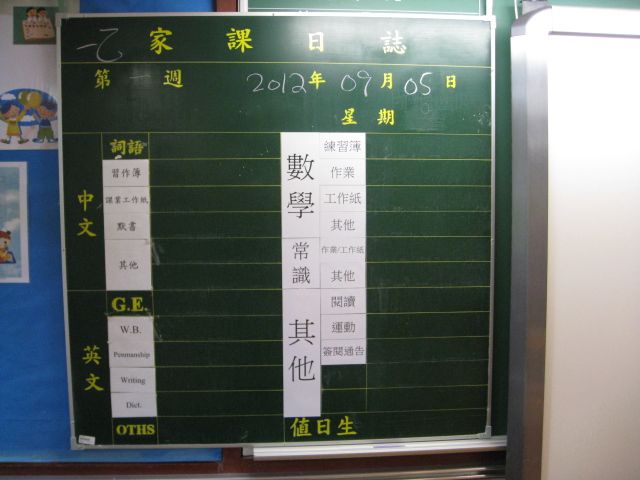 一乙 家課日誌
第一週 2012年09月05日
星期
中文
詞語
習作簿
課業工作紙
默書
其他
英文
G.E.
W.B.
Penmanship
Writing
Dict.
OTHS
數學
練習簿
作業
工作紙
其他
常識
作業/工作紙
其他
其他
閱讀
運動
簽閱通告
值日生